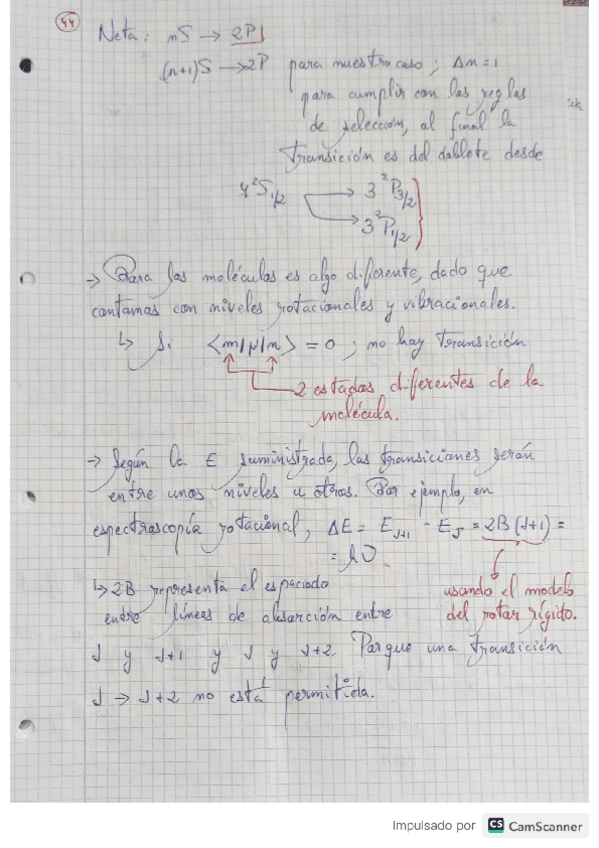 44
Neta: nS → 2P
(n+1)S → 2P para nuestro caso; Δn=1
para cumplir con las reglas
de selección, al final la
transición es del doblete desde
4²S₁/₂ → 3²P₃/₂
→ 3²P₁/₂
→ Para las moléculas es algo diferente, dado que
contamos con niveles rotacionales y vibracionales.
↳ Si <m|μ|n> = 0; no hay transición
2 estados diferentes de la
molécula.
→ Según la E suministrada, las transiciones serán
entre unos niveles u otros. Por ejemplo, en
espectroscopía rotacional, ΔE = E_J+1 - E_J = 2B(J+1) =
= hν
↳ 2B representa el espaciado
entre líneas de absorción entre
usando el modelo
del rotor rígido.
J y J+1 y J y J+2. Porque una transición
J → J+2 no está permitida.
Impulsado por CS CamScanner